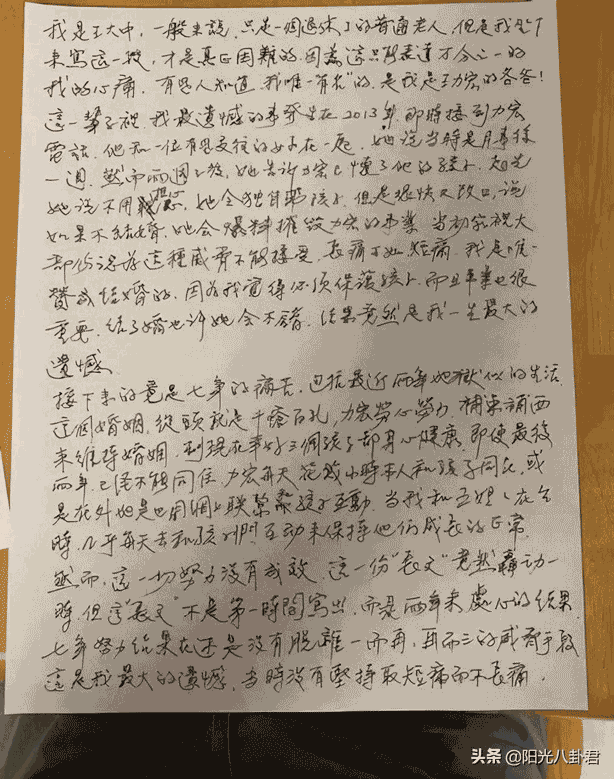 我是王大中，一般來說，只是一個退休了的普通老人，但是我坐下
來寫這一撇，才是真正困難的，因為這只能表達萬分之一的
我的心痛，有些人知道，我唯一"有名"的，是我是王力宏的爸爸！
這一輩子裡，我最遺憾的事發生在2013年，即時接到力宏
電話，他和一位有過交往的女子在一起，她說當時是月事後
一週，然而兩週之後，她告訴力宏已懷了他的孩子，起先
她說不用擔心，她會獨自帶孩子，但是很快又改口，說
如果不結婚，她會爆料摧毀力宏的事業，當初家裡大
部份認為這種威脅不能接受，長痛不如短痛，我是唯一
贊成結婚的，因為我覺得必須保護孩子，而且事業也很
重要，結了婚也許她會不錯，結果竟然是我一生最大的
遺憾
接下來的竟是七年的痛苦，包括最近兩年地獄似的生活，
這個婚姻，從頭就是千瘡百孔，力宏勞心勞力，補東補西
來維持婚姻，到現在幸好三個孩子都身心健康，即使最後
兩年，已經不能同住，力宏每天花數小時本人和孩子同在，或
是在外地是也用網上聯繫孩子互動，當我和五姐在台
時，几乎每天去和孩子們互動來保持他們成長的正常，
然而，這一切努力沒有成效，這一份"長文"竟然轟動一
時，但這"長文"不是第一時間寫出，而是兩年來處心的結果，
七年努力結果在还是沒有脫離一而再，再而三的威脅手段
這是我最大的遺憾，當時沒有堅持取短痛而不長痛．
头条 @阳光八卦君